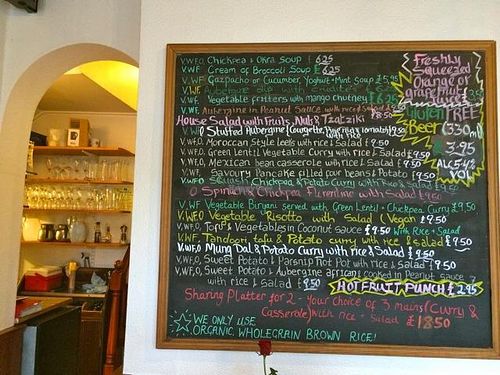 V.W.F.O Chickpea & Okra Soup £6.25
V.WF Cream of Broccoli Soup £6.25
V.WF Gazpacho or Cucumber, Yoghurt + Mint Soup £5.95
V.WF Aubergine dip with crudites
V.WF Vegetable fritters with mango chutney
V.WF Aubergine in Peanut Sauce with rice & Salad
House Salad with Fruits, Nuts & Tzatziki
O Stuffed Aubergine
V.W.F.O, Moroccan Style leeks with rice & Salad £9.50
V.W.F.O, Green Lentil Vegetable Curry with rice & Salad £9.50
V.W.F.O, Mexican bean casserole with rice & Salad £9.50
V.WF Savoury Pancake filled four beans & Potato £9.50
V.W.F.O Spinach, Chickpea & Potato Curry with Rice & Salad £9.50
O Spinach, Chickpea Florentine with Salad £9.50
V.WF Vegetable Biryani served with Green Lentil & Chickpea Curry £9.50
V.W.F.O Vegetable Risotto with Salad (Vegan £9.50
V.W.F.O, Tofu & Vegetables in Coconut sauce £9.50 With Rice & Salad
V.W.F. Tandoori tofu & Potato curry with rice & Salad £9.50
V.W.F.O Mung Dal & Potato Curry with rice & Salad £9.50
V.W.F.O, Sweet Potato & Parsnip Hot Pot with rice & Salad £9.50
V.W.F.O, Sweet Potato & Aubergine african cooked in Peanut sauce
with rice & Salad £9.50
HOT FRUIT PUNCH £2.95
Sharing Platter for 2 - your choice of 3 mains (Curry &
Casserole) with rice + Salad £18.50
WE ONLY USE
ORGANIC, WHOLEGRAIN BROWN RICE!
Freshly
Squeezed
Orange or
grapefruit
Gluten FREE
Beer (330ml
£3.95
ALC 5.4%
VOL